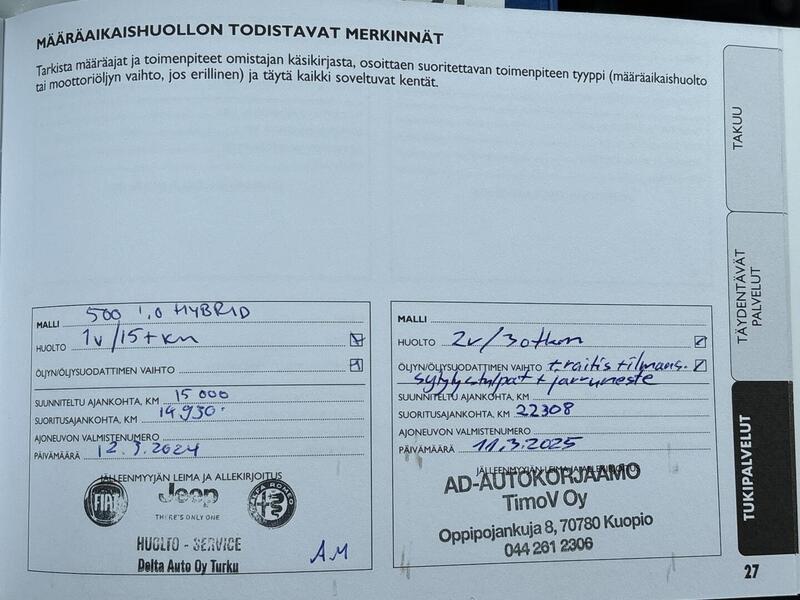 MÄÄRÄAIKAISHUOLLON TODISTAVAT MERKINNÄT
Tarkista määräajat ja toimenpiteet omistajan käsikirjasta, osoittaen suoritettavan toimenpiteen tyyppi (määräaikaishuolto
tai moottoriöljyn vaihto, jos erillinen) ja täytä kaikki soveltuvat kentät.
MALLI 500 1,0 HYBRID
HUOLTO 1v/15tkm
ÖLJYN/ÖLJYSUODATTIMEN VAIHTO
SUUNNITELTU AJANKOHTA, KM 15 000
SUORITUSAJANKOHTA, KM 14930
AJONEUVON VALMISTENUMERO
PÄIVÄMÄÄRÄ 12.3.2024
JÄLLEENMYYJÄN LEIMA JA ALLEKIRJOITUS
FIAT
Jeep
THERE'S ONLY ONE
ALFA ROMEO
HUOLTO - SERVICE
Delta Auto Oy Turku
AM
MALLI
HUOLTO 2v/30tkm
ÖLJYN/ÖLJYSUODATTIMEN VAIHTO + raitis+ilmans.
sytytystulpat + jarruneste
SUUNNITELTU AJANKOHTA, KM
SUORITUSAJANKOHTA, KM 22308
AJONEUVON VALMISTENUMERO
PÄIVÄMÄÄRÄ 11.3.2025
JÄLLEENMYYJÄN LEIMA JA ALLEKIRJOITUS
AD-AUTOKORJAAMO
TimoV Oy
Oppipojankuja 8, 70780 Kuopio
044 261 2306
TAKUU
TÄYDENTÄVÄT
PALVELUT
TUKIPALVELUT
27